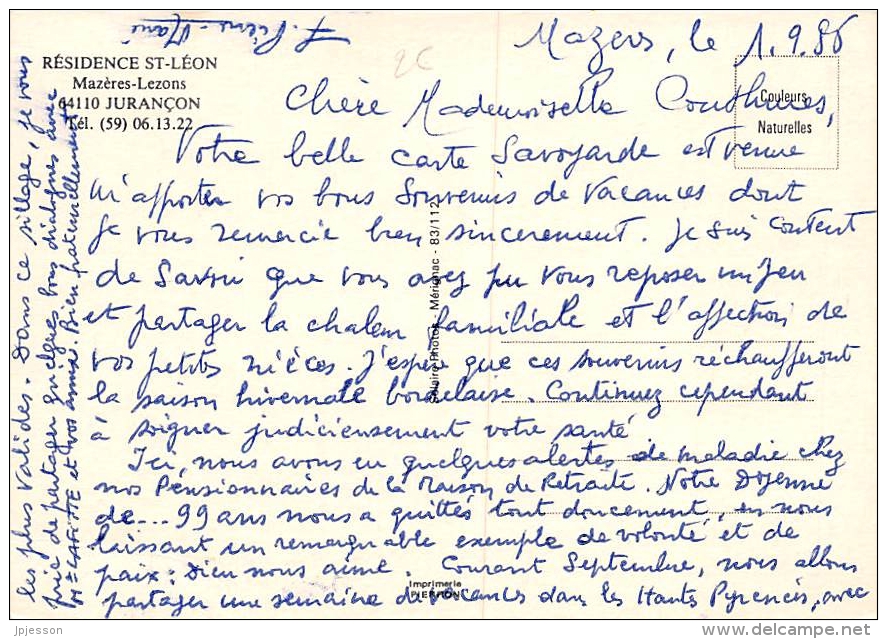 RÉSIDENCE ST-LÉON
Mazères-Lezons
64110 JURANÇON
Tél. (59) 06.13.22
Couleurs
Naturelles
Mazères, le 1.9.86
Chère Mademoiselle
Votre belle carte Savoyarde est venue
m'apporter vos bons Souvenirs de Vacances dont
je vous remercie bien sincèrement. Je suis content
de Savoir que vous avez pu vous reposer un peu
et partager la chaleur familiale et l'affection de
vos petites nièces. J'espère que ces souvenirs réchaufferont
la saison hivernale bordelaise. Continuez cependant
à soigner judicieusement votre santé
Ici, nous avons eu quelques alertes de maladie chez
nos Pensionnaires de la Maison de Retraite. Notre Doyenne
de... 99 ans nous a quittés tout doucement, en nous
laissant un remarquable exemple de volonté et de
paix : Dieu nous aime. Courant Septembre, nous allons
partager une semaine de vacances dans les Hautes Pyrénées, avec
les plus valides. Dans ce sillage, je vous
prie de partager quelques bons dialogues avec
Mme LAFITTE et vos amies. Bien fraternellement
F. Pierre-Marie
Mérignac - 83/112
Imprimerie
PIERRON
jpjesson
www.delcampe.net